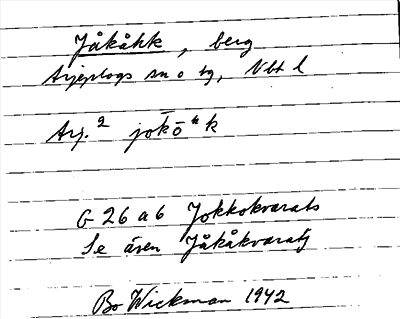 Jåkåkk, berg
Arjeplogs sn o tg, Vbt l
Arj.² jokō"k
G 26 a 6 Jokkokvarats
Se även Jåkåkvaratj
Bo Wickman 1942